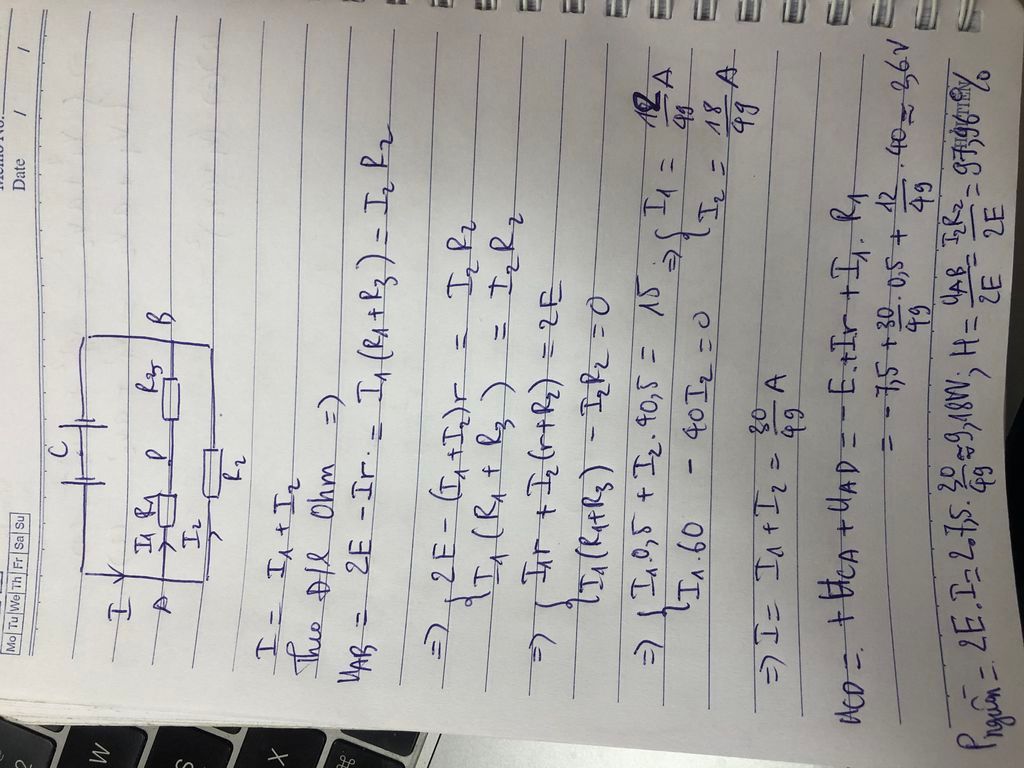 Memo No.
Date / /
Mo Tu We Th Fr Sa Su
C
I
A I1 R1 D R3 B
I2
R2
I = I1 + I2
Theo Đ/l Ohm =)
UAB = 2E - Ir = I1(R1+R3) = I2R2
=) { 2E - (I1+I2)r = I2R2
I1(R1+R3) = I2R2
=) { I1r + I2(r+R2) = 2E
I1(R1+R3) - I2R2 = 0
=) { I1.0,5 + I2.40,5 = 15 =) { I1 = 12/49 A
I1.60 - 40I2 = 0 I2 = 18/49 A
=) I = I1 + I2 = 30/49 A
UCD = + UCA + UAD = -E + Ir + I1.R1
= -7,5 + 30/49 . 0,5 + 12/49 . 40 ≈ 2,6V
Pnguồn = 2E.I = 2.7,5. 30/49 ≈ 9,18W; H = UAB/2E = I2R2/2E = 97,96%